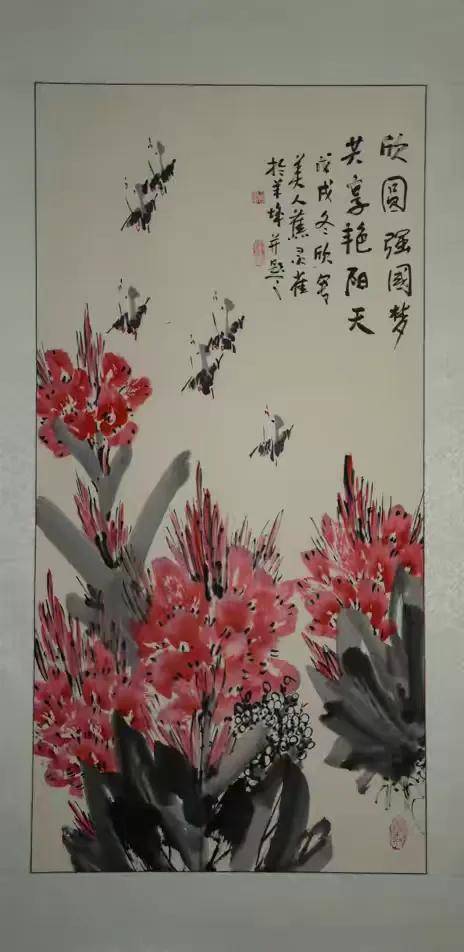 欣圆强国梦
共享艳阳天
戊戌冬欣写
美人蕉灵雀
于羊城并题